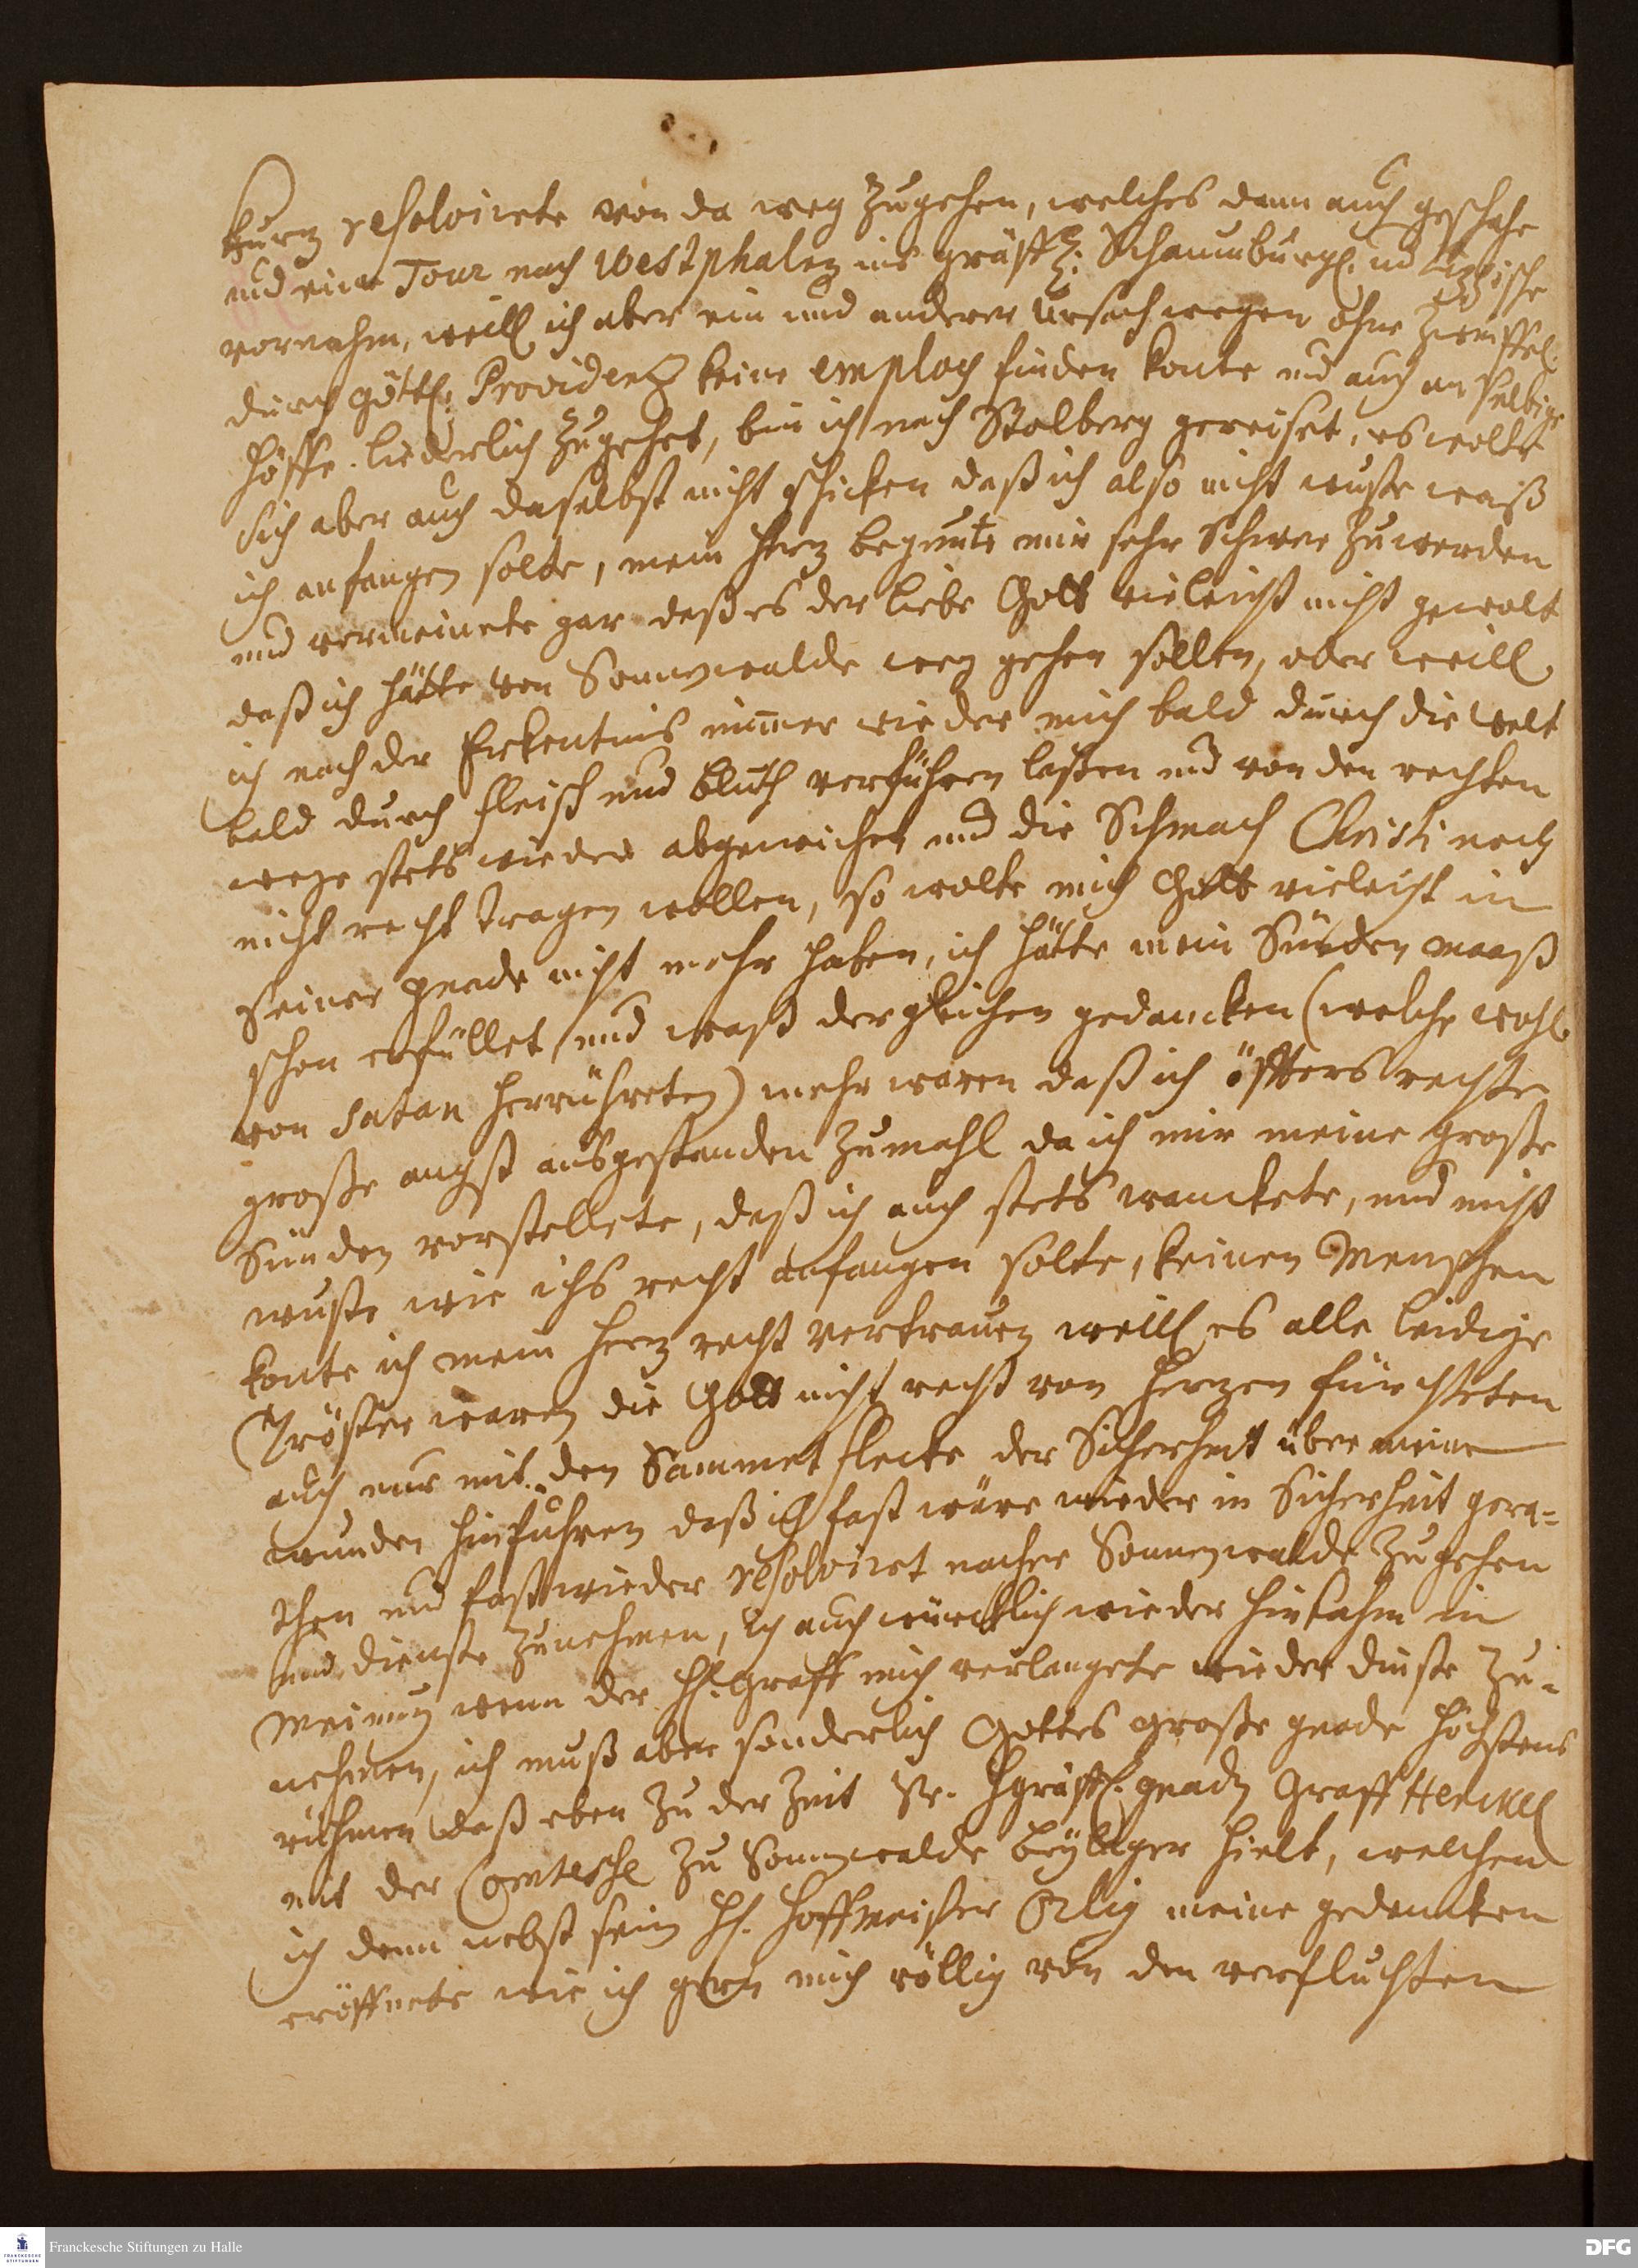 kurz resolvirete von da weg zugehen, welches dann auch geschahe
und eine Tour nach Westphalen ins gräffl: Schaumburgl. und Lippische
vornahm, weill ich aber ein und anderer Ursach wegen ohne Zweiffel
durch göttl: Providenz keine employ finden konte und auch an selbige
Höffe liederlich zugehet, bin ich nach Stolberg gereiset, es wolte
sich aber auch daselbst nicht schicken daß ich also nicht wuste waß
ich anfangen solte, mein Herz begunte mir sehr schwer zuwerden
und vermeinete gar daß es der liebe Gott vieleicht nicht gewolt
daß ich hätte von Sonnewalde weg gehen sollen, oder weill
ich nach der Erkentnis immer wieder mich bald durch die Welt
bald durch fleisch und bluth verführen laßen und von den rechten
wege stets wieder abgewichen und die Schmach Christi noch
nicht recht tragen wollen, so wolte mich Gott vieleicht in
seiner gnade nicht mehr haben, ich hätte mein Sünden maaß
schon erfüllet, und waß dergleichen gedancken (welche wohl
von Satan herrühreten) mehr waren daß ich öffters rechte
große angst ausgestanden zumahl da ich mir meine große
Sünden vorstellete, daß ich auch stets wanckete, und nicht
wuste wie ichs recht anfangen solte, keinen Menschen
konte ich mein Herz recht vertrauen weill es alle leidige
Tröster waren die Gott nicht recht von Herzen fürchteten
auch nur mit den Sammet flecke der Sicherheit über meine
wunden hinfuhren daß ich fast wäre wieder in Sicherheit gera=
then und fast wieder resolviret nacher Sonnenwalde zugehen
und dienste zunehmen, ich auch würcklich wieder hinkahm in
Meinung wenn der H. Graff mich verlangete wieder dinste zu=
nehmen, ich muß aber sonderlich Gottes große gnade höchstens
rühmen daß eben zu der Zeit Sr. Hgräffl. gnadn Graff Henckell
mit der Comtesse zu Sonnewalde beylager hielt, welchen
ich denn nebst sein H. Hoffmeister meine gedancken
eröffnete wie ich gern mich völlig von den verfluchten
Franckesche Stiftungen zu Halle
DFG